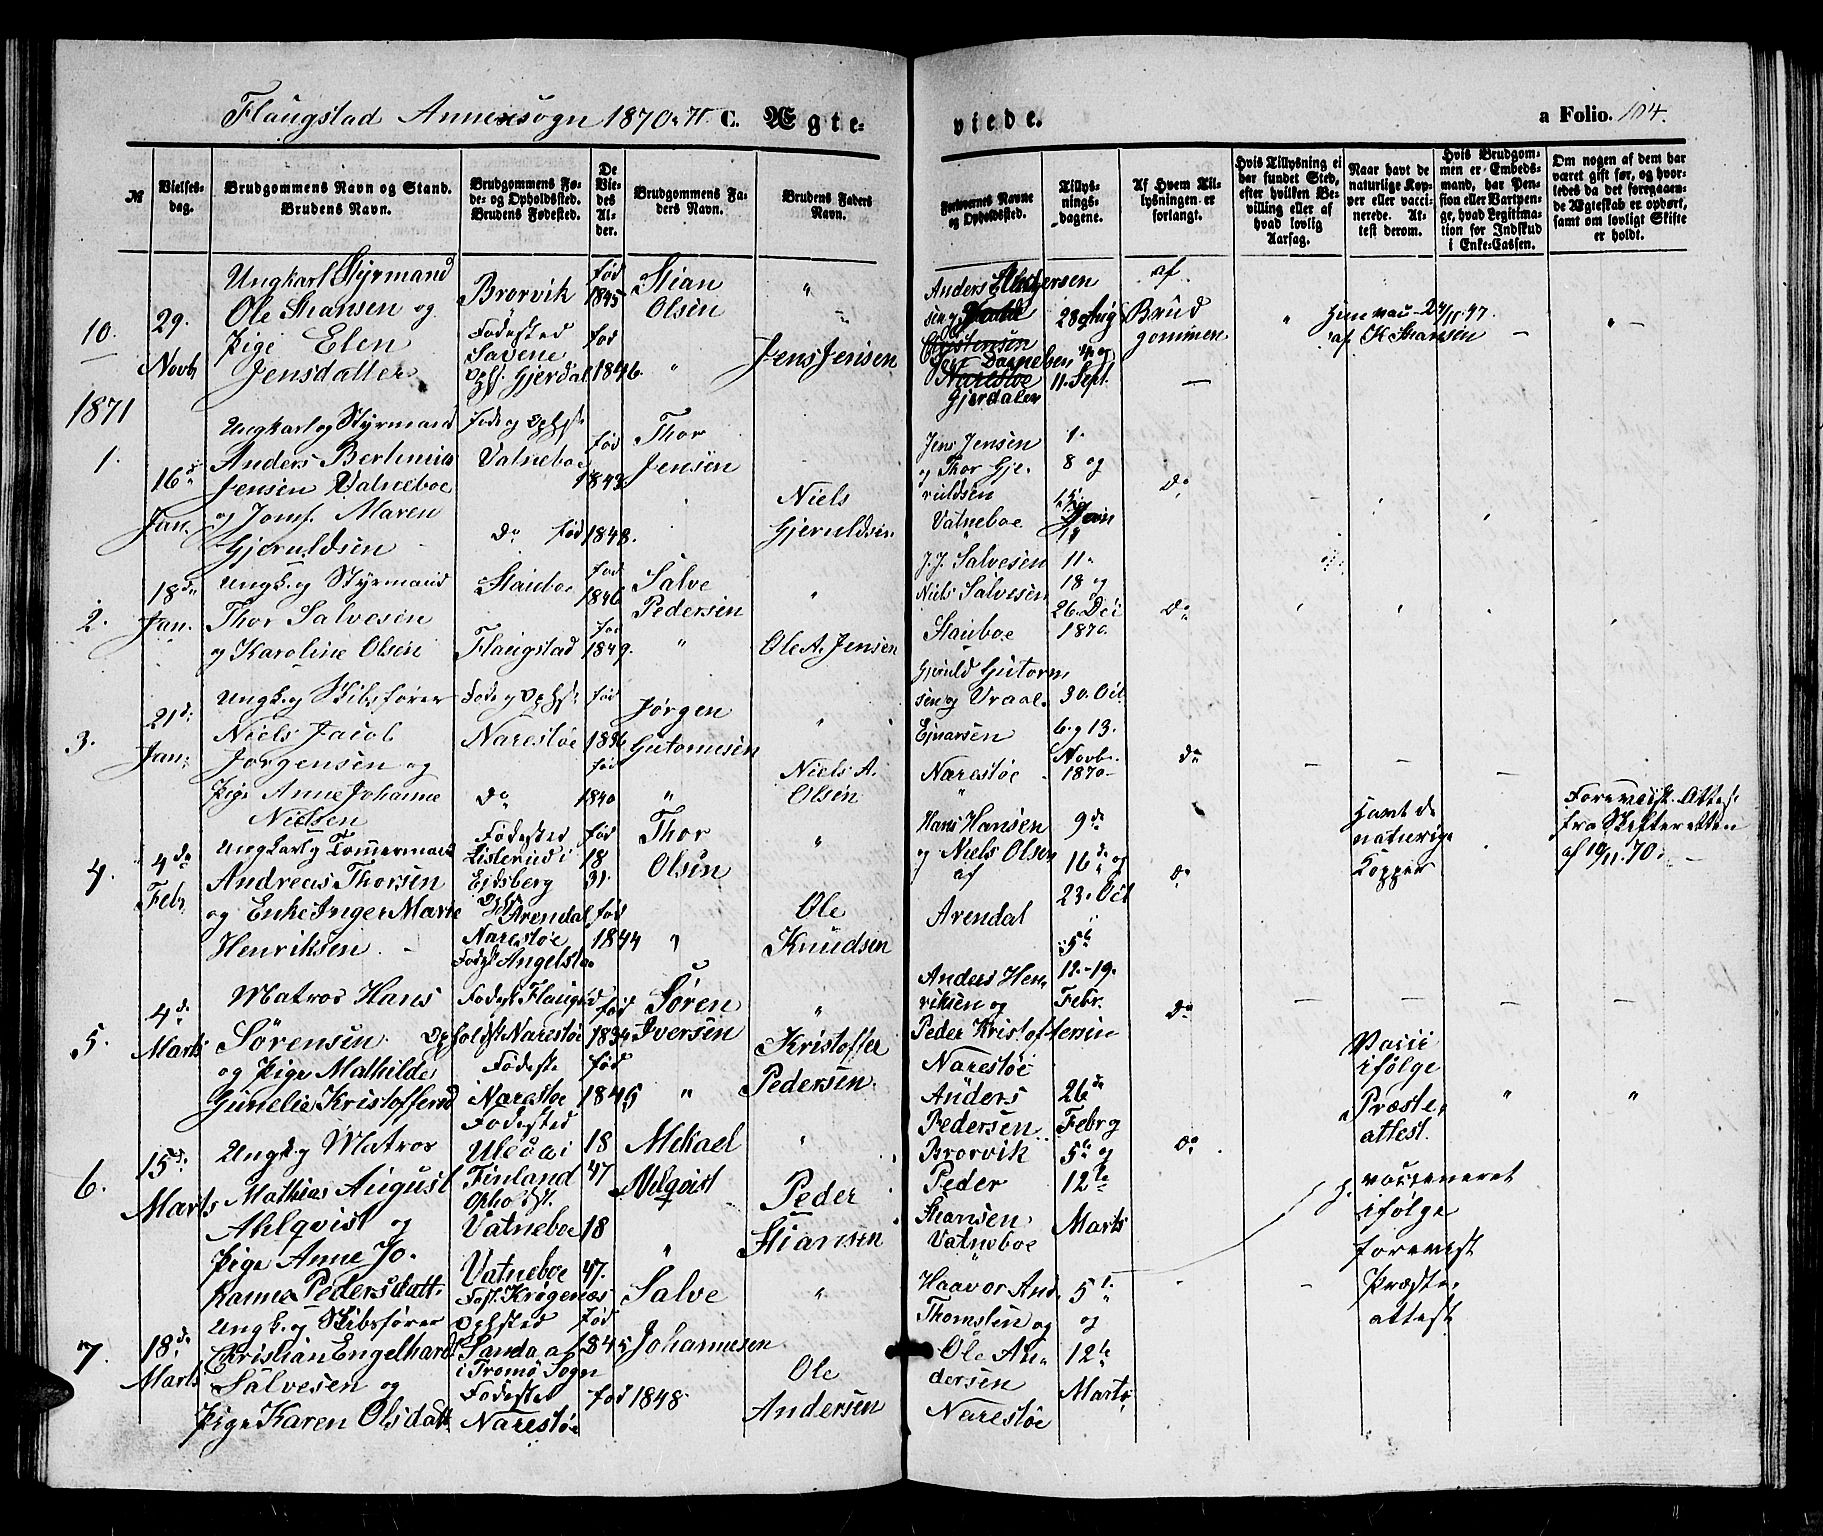 Flaugstad Annexsogn 1870-71. C. Ægte-
viede.
a Folio. 104.
№
Vielses-
dag.
Brudgommens Navn og Stand.
Brudens Navn.
Brudgommens Fø-
de- og Opholdssted.
Brudens Fødested.
De
Vie-
des
Al-
der.
Brudgommens Fa-
ders Navn.
Brudens Faders
Navn.
Forlovernes Navne
og Opholdssted.
Tillys-
nings-
dagene.
Af Hvem Til-
lysningen er
forlangt.
Hvis Tillysning ei
har fundet Sted,
efter hvilken Be-
villing eller af
hvad lovlig
Aarsag.
Naar havt de
naturlige Kop-
per eller vacci-
nerede. At-
test derom.
Hvis Brudgom-
men er Embeds-
mand, har Pen-
sion eller Vartpen-
ge, hvad Legitima-
tion for Indskud
i Enke-Cassen.
Om nogen af dem har
været gift før, og hvor-
ledes da det foregaaen-
de Ægteskab er ophørt,
samt om lovligt Skifte
er holdt.
10.
29.
Novb
Ungkarl Styrmand
Ole Stiansen og
Pige Elen
Jensdatter
Brorvik
Fødested
Savene
Oph. Gjerdal
fød
1845
fød
1846.
Stian
Olsen
Jens Jensen
Anders
Christensen
Peer Danielsen
Narestøe
Gjerdalen
28 Aug
11. Sept.
af
Brud
gommen
Hun vac.
af K Hansen
1871
1.
16de
Jan.
Ungkarl og Styrmand
Anders
Jensen Vatneboe
og Jomf. Maren
Gjeruldsen
Føde og Ophst
Vatneboe
do fød
fød
1843
1848.
Thor
Jensen
Niels
Gjeruldsen
Jens Jensen
og Thor Gje-
ruldsen
Vatneboe
1.
8 og
15
do
2.
18de
Jan.
Ungk. og Styrmand
Thor Salvesen
og Karoline Olsen
Stauboe
Flaugstad
fød
1846
fød
1849.
Salve
Pedersen
Ole A. Jensen
J. J. Salvesen
Niels Salvesen
Stauboe
11.
18 og
26. Dec
1870.
do
3.
21de
Jan.
Ungk. og Skibsfører
Niels Jacob
Jørgensen og
Pige Anne Johanne
Nielsen
Føde og Ophst.
Narestøe
do
fød
1836
fød
1840
Jørgen
Gutomsen
Niels A.
Olsen
Gjeruld Gutorm
sen og Vraal
Ejnarsen
Narestøe
30. Oct
6. og 13.
Novb.
1870
do
4.
4de
Febr
Ungkarl og Tømmermand
Andreas Thorsen
og Enke Inger Marie
Henriksen
Fødested
Listerud i
Eidsberg
Arendal
Narestøe
Fødest Angelstø
fød
18
31.
fød
1844
Thor
Olsen
Ole
Knudsen
Hans Hansen
og Niels Olsen
af
Arendal
9de
16de og
23. Oct
do
Havt de
naturlige
Kopper
Forevist. Attest
fra Skifteretten
af 19/11.70.
5.
4de
Marts
Matros Hans
Sørensen
og Pige Mathilde
Gunelie Kristoffersd
Fødest Flaugsd
Opholdst. Narestøe
Fødeste
Narestøe
fød
1834
fød
1845
Søren
Iversen
Kristoffer
Pedersen.
Anders Hen
riksen og
Peder Kristoffersen
Narestøe
5te
12.-19.
Febr.
do
6.
15de
Marts
Ungk. og Matros
Mathias August
Ahlqvist og
Pige Anne Jo-
hanna Pedersdatt.
Fødested
Finland
Opholdst.
Vatneboe
Vatneboe
18
47
18
47.
Mikael
Ahlqvist
Peder
Stiansen
Anders
Pedersen
Brorvik
Peder
Stiansen
Vatneboe
26de
Febr og
5te og
12te
Marts
do
Vacci
ifølge
Præste
attest.
7.
18de
Marts
Ungk. og Skibsfører
Christian Engelhardt
Salvesen og
Pige Karen Olsdatt
Føst. Krøgenæs
Ophsted
i Tromø Sogn
Fødested
Narestøe
fød
1845
fød 1848
Salve
Johannesen
Ole
Andersen
Haavor And.
Thomsen og
Ole An-
dersen
Narestøe
5te
og
12te
Marts
vaccineret
ifølge
forevist
Præste-
attest